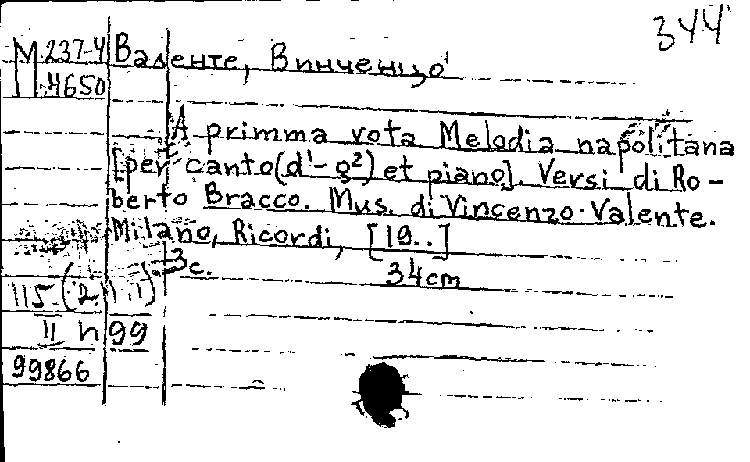 344
М 237-4 Валенте, Винченцо
4650
A primma vota Melodia napolitana
[per canto(d¹-g²) et piano]. Versi di Ro-
berto Bracco. Mus. di Vincenzo Valente.
Milano, Ricordi, [19..]
3c. 34cm
115.(2.1.1)
II н 99
99866